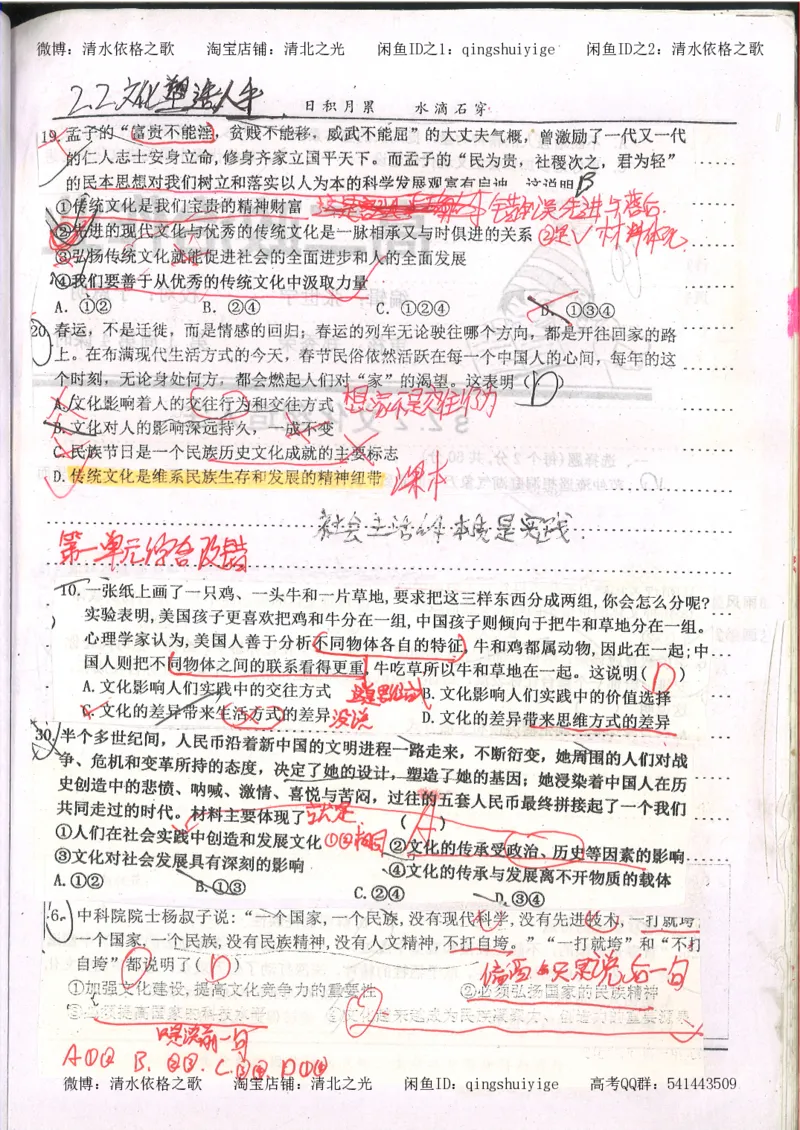 微博：清水依格之歌 淘宝店铺：清北之光 闲鱼ID之1：qingshuiyige 闲鱼ID之2：清水依格之歌
2.2 文化塑造人生
日积月累 水滴石穿
19. 孟子的“富贵不能淫，贫贱不能移，威武不能屈”的大丈夫气概，曾激励了一代又一代
的仁人志士安身立命，修身齐家立国平天下。而孟子的“民为贵，社稷次之，君为轻”
的民本思想对我们树立和落实以人为本的科学发展观富有启迪。这说明 B
①传统文化是我们宝贵的精神财富
②先进的现代文化与优秀的传统文化是一脉相承又与时俱进的关系
③弘扬传统文化就能促进社会的全面进步和人的全面发展
④我们要善于从优秀的传统文化中汲取力量
A. ①② B. ②④ C. ①②④ D. ①③④
20. 春运，不是迁徙，而是情感的回归；春运的列车无论驶往哪个方向，都是开往回家的路
上。在布满现代生活方式的今天，春节民俗依然活跃在每一个中国人的心间，每年的这
个时刻，无论身处何方，都会燃起人们对“家”的渴望。这表明（ D ）
A. 文化影响着人的交往行为和交往方式 想家不是交往行为
B. 文化对人的影响深远持久，一成不变
C. 民族节日是一个民族历史文化成就的主要标志
D. 传统文化是维系民族生存和发展的精神纽带 课本
社会生活的本质是实践.
第一单元综合改错
10. 一张纸上画了一只鸡、一头牛和一片草地，要求把这三样东西分成两组，你会怎么分呢？
实验表明，美国孩子更喜欢把鸡和牛分在一组，中国孩子则倾向于把牛和草地分在一组。
心理学家认为，美国人善于分析不同物体各自的特征，牛和鸡都属动物，因此在一起；中
国人则把不同物体之间的联系看得更重，牛吃草所以牛和草地在一起。这说明（ D ）
A. 文化影响人们实践中的交往方式 B. 文化影响人们实践中的价值选择
C. 文化的差异带来生活方式的差异 没说 D. 文化的差异带来思维方式的差异
30. 半个多世纪间，人民币沿着新中国的文明进程一路走来，不断衍变，她周围的人们对战
争、危机和变革所持的态度，决定了她的设计，塑造了她的基因；她浸染着中国人在历
史创造中的悲愤、呐喊、激情、喜悦与苦闷，过往的五套人民币最终拼接起了一个我们
共同走过的时代。材料主要体现了 （ A ）
①人们在社会实践中创造和发展文化 ②文化的传承受政治、历史等因素的影响
③文化对社会发展具有深刻的影响 ④文化的传承与发展离不开物质的载体
A. ①② B. ①③ C. ②④ D. ③④
6. 中科院院士杨叔子说：“一个国家，一个民族，没有现代科学，没有先进技术，一打就垮；
一个国家，一个民族，没有民族精神，没有人文精神，不打自垮。”“一打就垮”和“不打
自垮”都说明了（ D ） 偏西与只是说后一句
①加强文化建设，提高文化竞争力的重要性 ②必须弘扬国家的民族精神
③必须提高国家的科技水平 ④文化越来越成为民族凝聚力、创造力的重要源泉
只是说前一句
微博：清水依格之歌 淘宝店铺：清北之光 闲鱼ID：qingshuiyige 高考QQ群：541443509